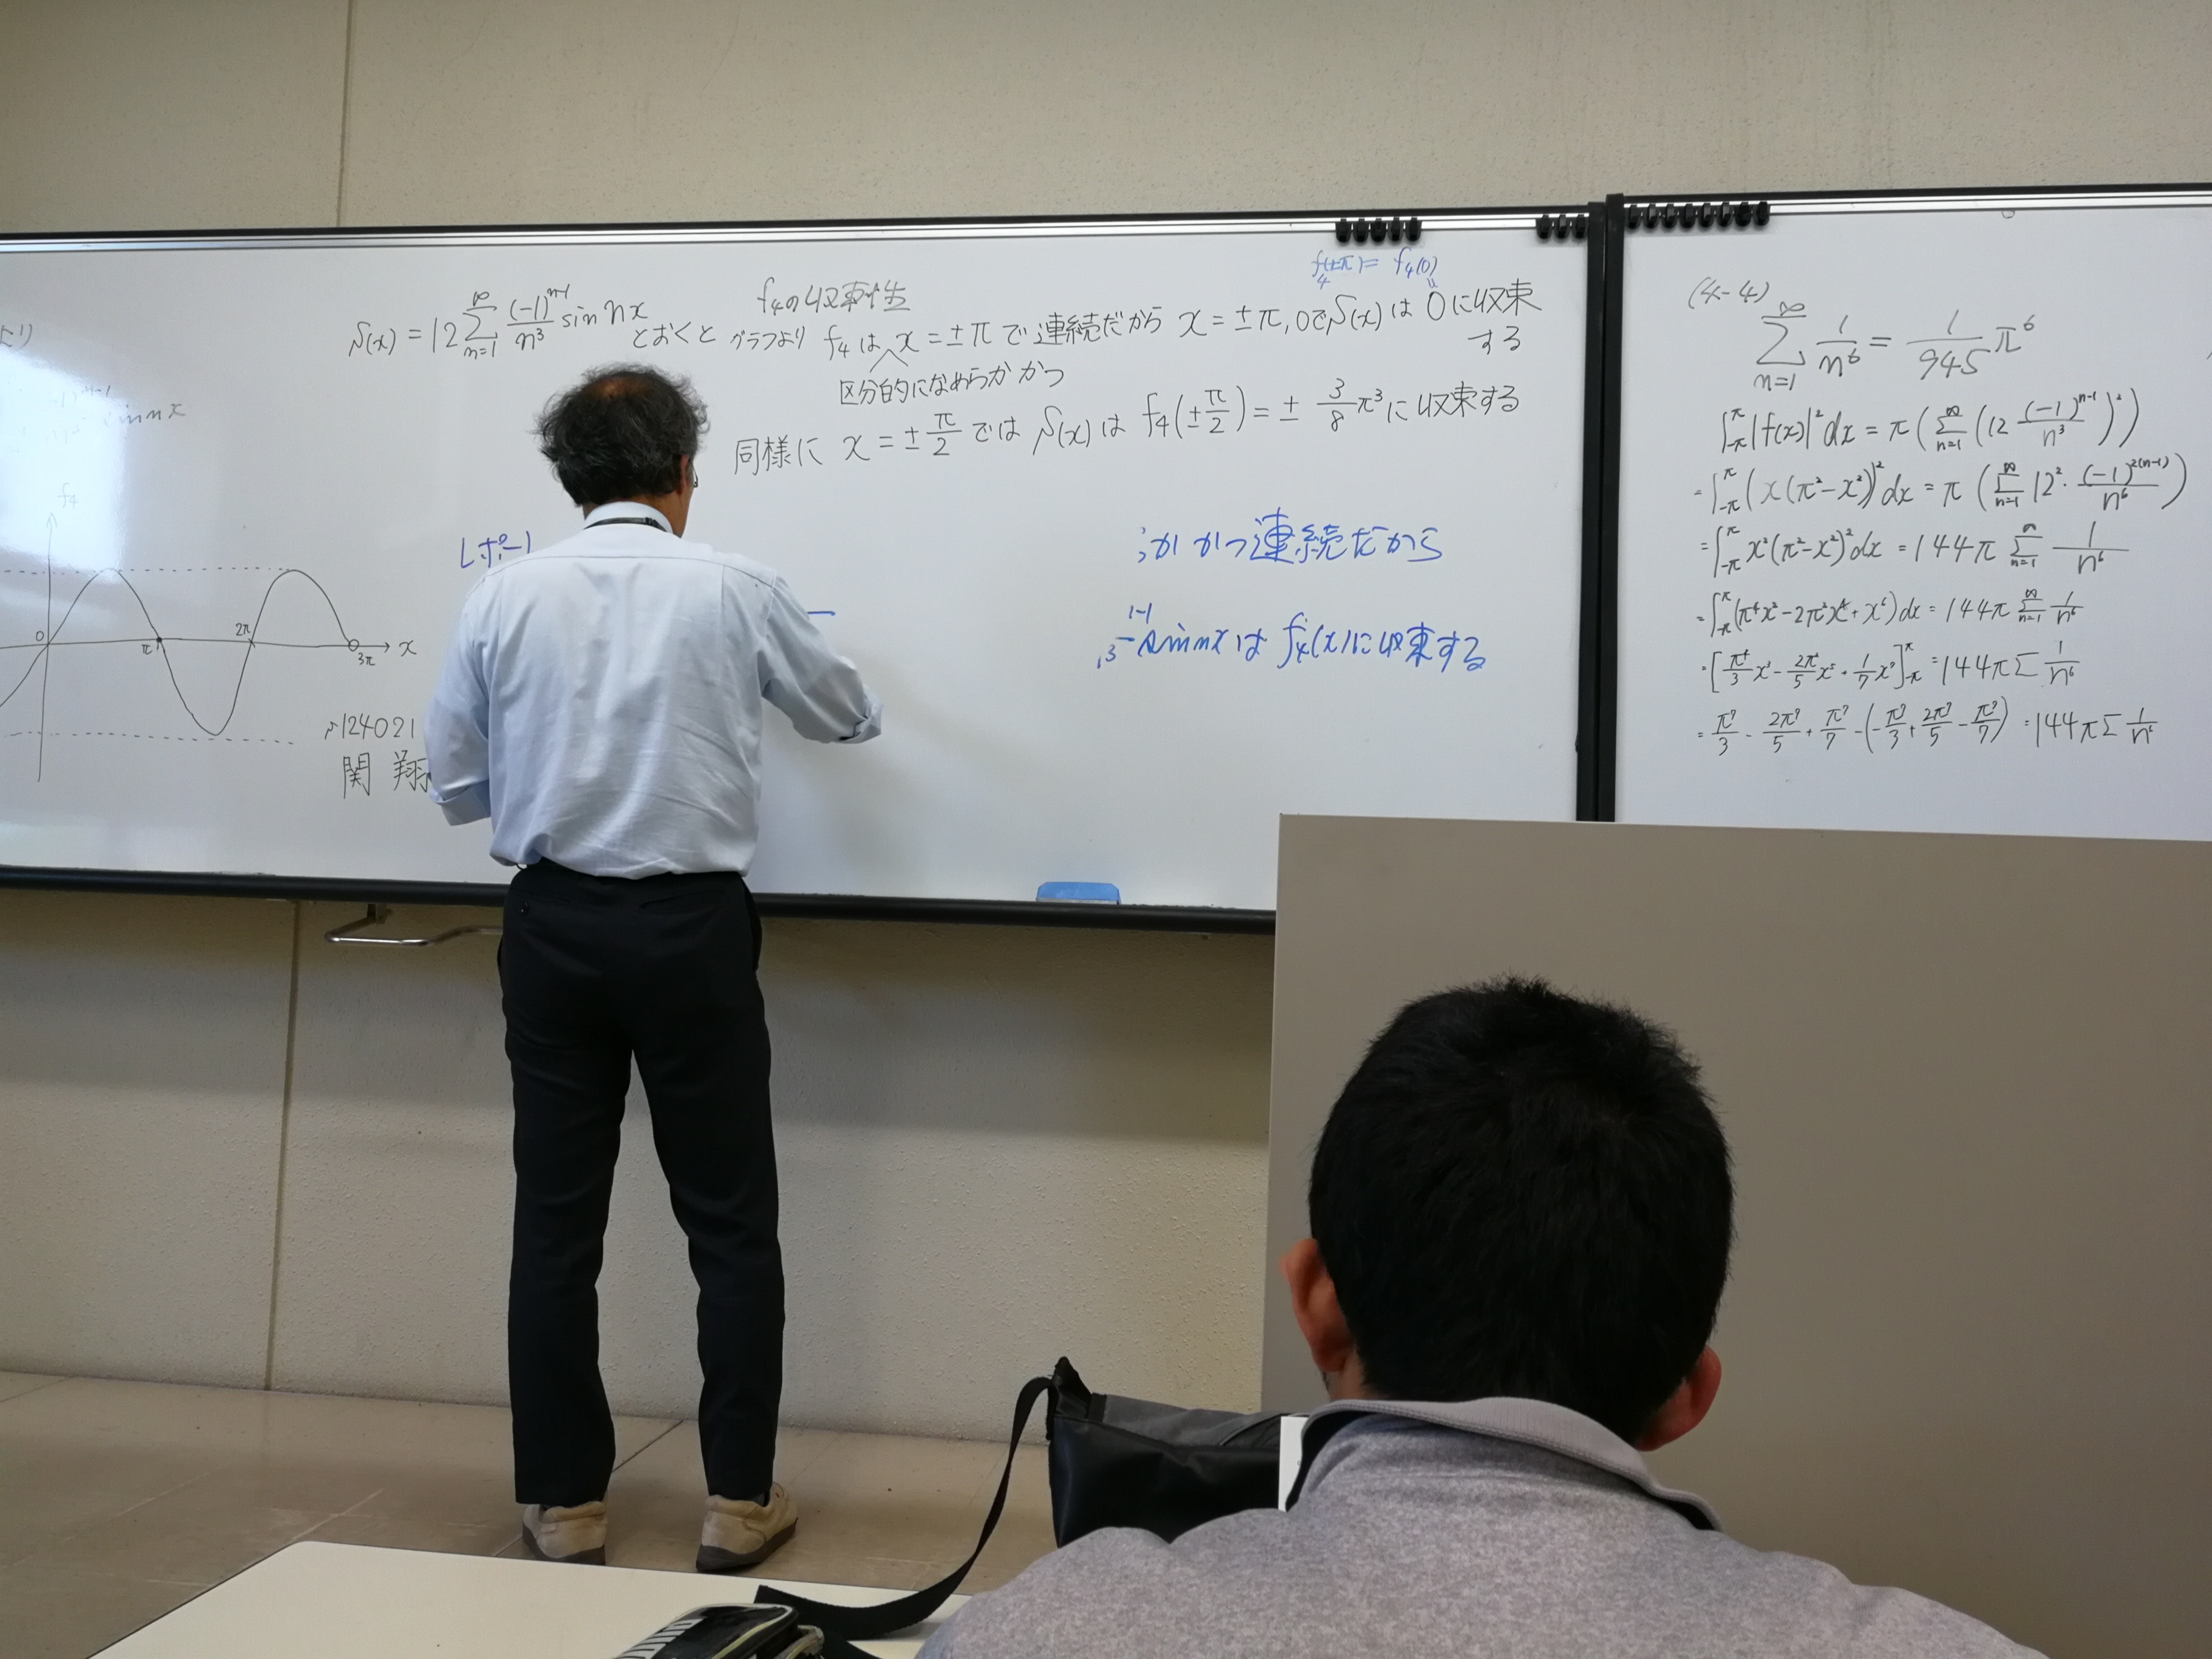 f₄
0
π
2π
3π
x
124021
関 翔
S(x) = 12 ∑_{n=1}^{∞} (-1)^{n-1}/n³ sin nx とおくと
f₄の収束性
グラフより f₄は x=±πで連続だから x=±π,0でS(x)は 0に収束
する
区分的になめらか かつ
f₄(±π)= f₄(0)
同様に x=±π/2 では S(x)は f₄(±π/2)=± 3/8 π³に収束する
かつ連続だから
sin nx は f₄(x)に収束する
(4-4)
∑_{n=1}^{∞} 1/n⁶ = 1/945 π⁶
∫_{-π}^{π} |f(x)|² dx = π(∑_{n=1}^{∞} (12 (-1)^{n-1}/n³)²)
= ∫_{-π}^{π} (x(π²-x²))² dx = π(∑_{n=1}^{∞} 12²・(-1)^{2(n-1)}/n⁶)
= ∫_{-π}^{π} x²(π²-x²)² dx = 144π ∑_{n=1}^{∞} 1/n⁶
= ∫_{-π}^{π} (π⁴x²-2π²x⁴+x⁶) dx = 144π ∑_{n=1}^{∞} 1/n⁶
= [π⁴/3 x³ - 2π²/5 x⁵ + 1/7 x⁷]_{-π}^{π} = 144π ∑ 1/n⁶
= π⁷/3 - 2π⁷/5 + π⁷/7 - (-π⁷/3 + 2π⁷/5 - π⁷/7) = 144π ∑ 1/n⁶